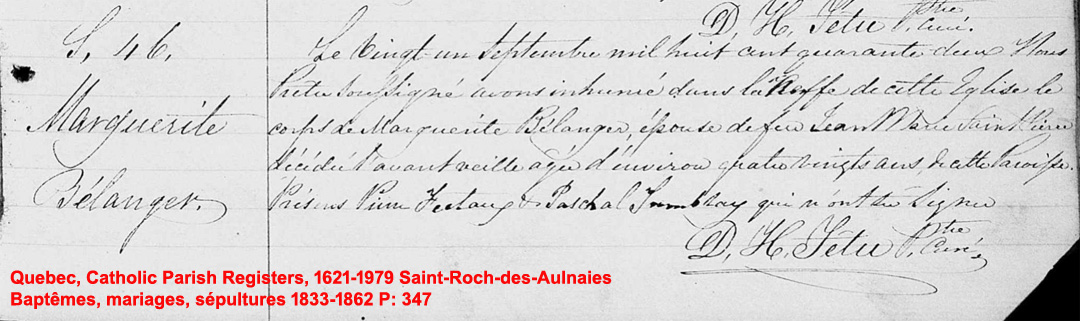 D. H. Têtu Ptre Curé.
S. 46.
Marguerite
Bélanger.
Le vingt un Septembre mil huit cent quarante deux Nous
Prêtre Soussigné avons inhumé dans la Neffe de cette Eglise le
corps de Marguerite Bélanger, épouse de feu Jean Marie Saint Pierre
décédée l'avant veille agée d'environ quatre vingts ans, de cette Paroisse.
Présens Pierre & Paschal qui n'ont su Signer
D. H. Têtu Ptre Curé.
Quebec, Catholic Parish Registers, 1621-1979 Saint-Roch-des-Aulnaies
Baptêmes, mariages, sépultures 1833-1862 P: 347